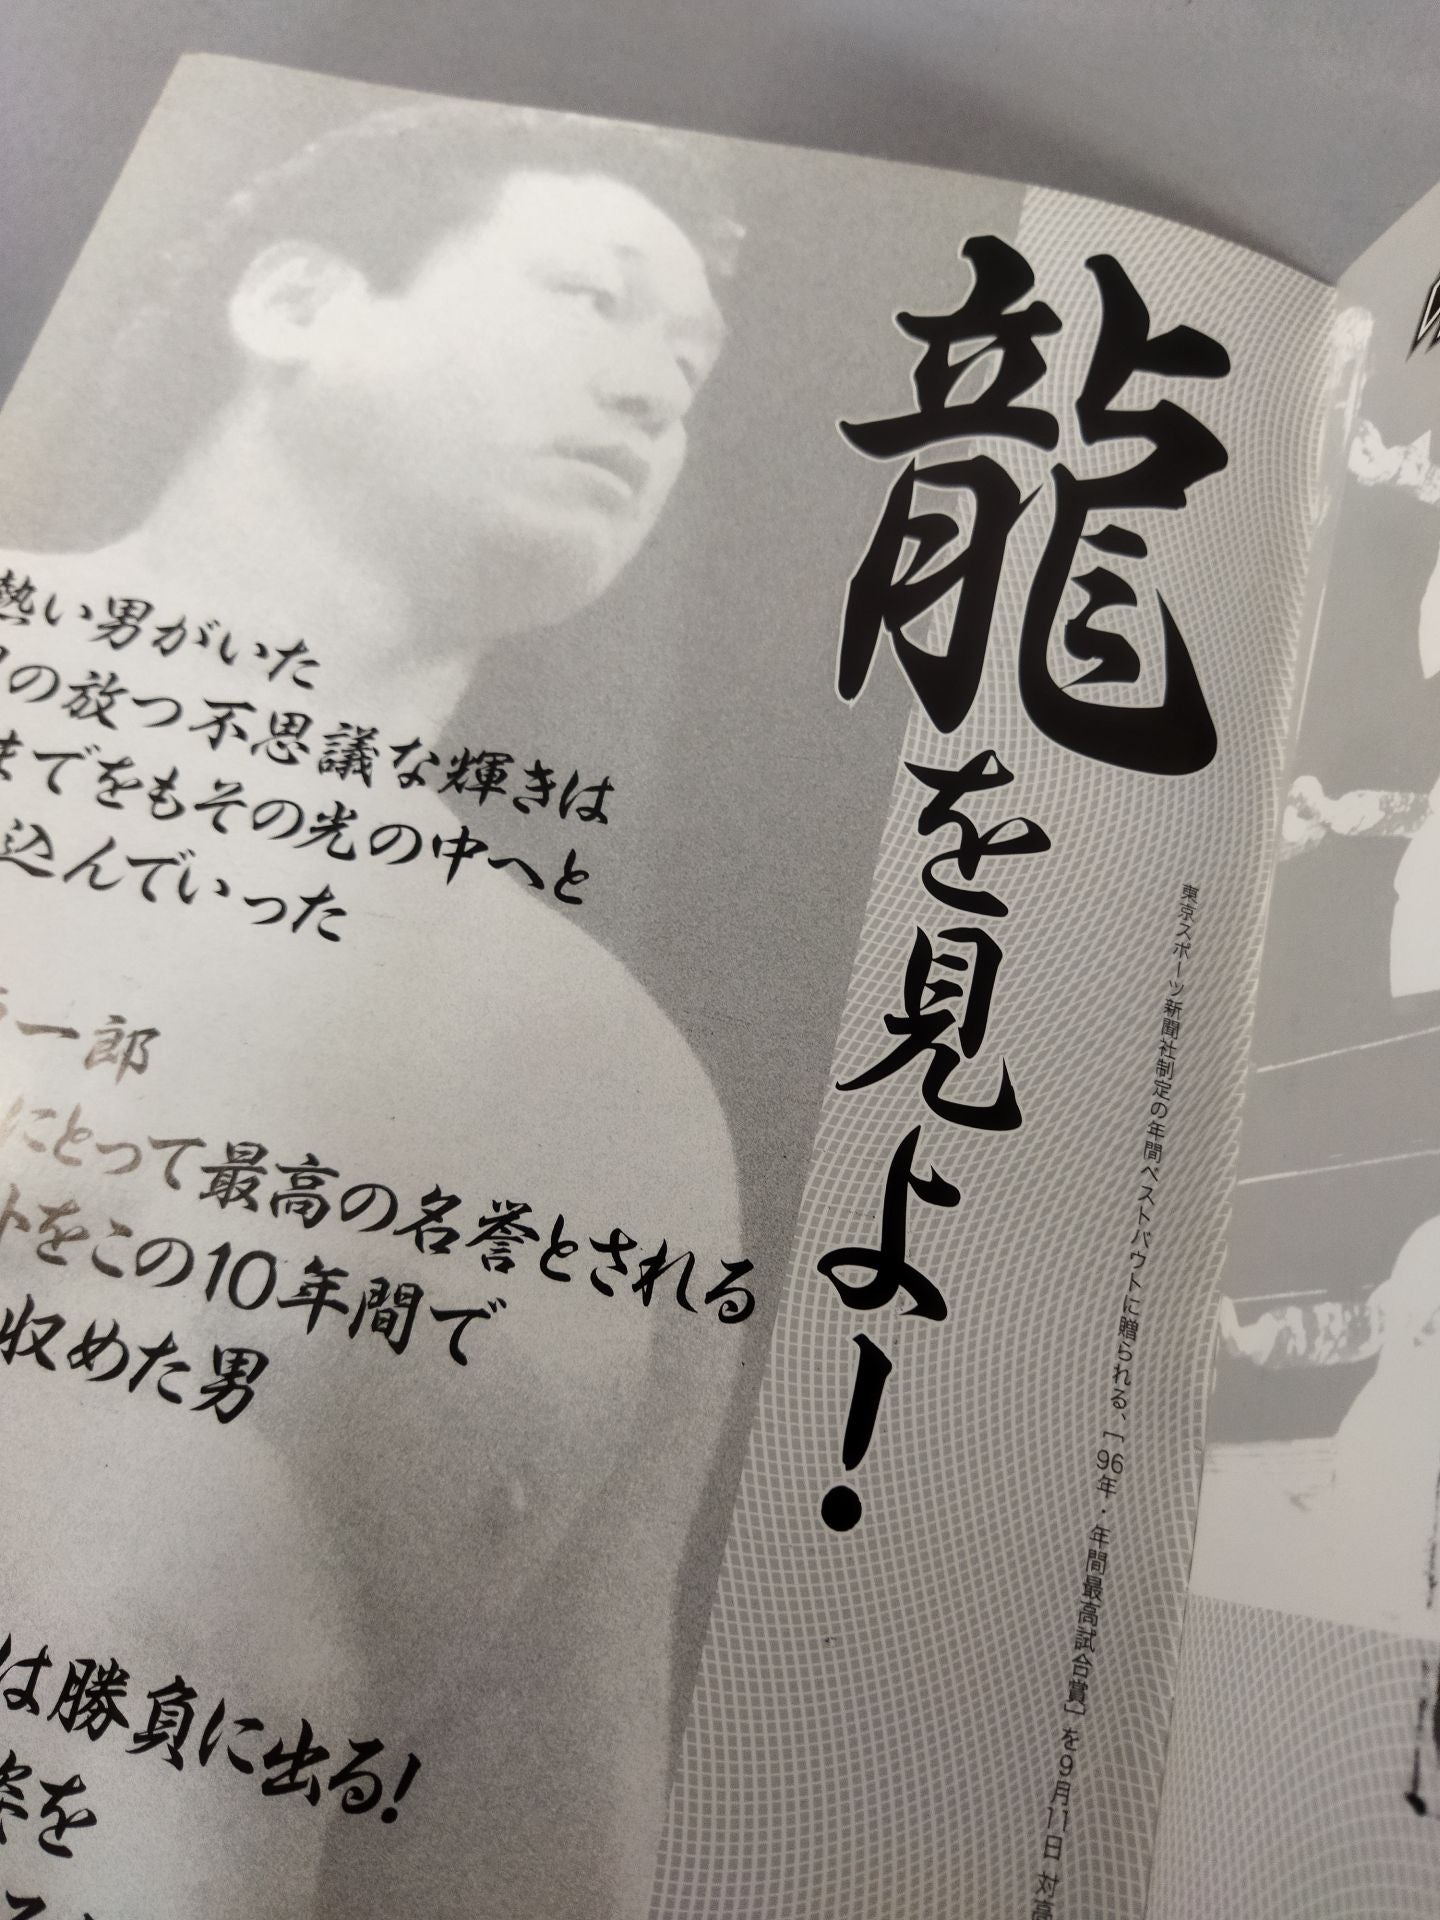 龍を見よ!
東京スポーツ新聞社制定の年間ベストバウトに贈られる、「96年・年間最高試合賞」を9月11日 対高
熱い男がいた
の放つ不思議な輝きは
までをもその光の中へと
込んでいった
一郎
にとって最高の名誉とされる
トをこの10年間で
収めた男
は勝負に出る!
姿を